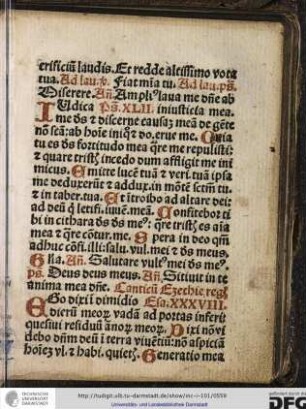 crificiũ laudis. Et redde altissimo vota
tua. Ad lau. Fiat mĩa tu. Ad lau. pš.
Miserere. Añ. Ampliꝰ laua me dñe ab
Iudica Pš. XLII. iniusticia mea.
me ds̃ & discerne causaȝ meã de gẽte
nõ sc̃ã: ab hoĩe iniq̃ & do. erue me. Quia
tu es ds̃ fortitudo mea q̃re me repulisti:
& quare trist, incedo dum affligit me ini
micus. Emitte lucẽ tuã & veri. tuã ipsa
me deduxerũt & addux. in mõtẽ sctm̃ tu.
& in taber. tua. Et ĩtroibo ad altare dei:
ad deũ q̃ letifi. iuuẽ. meã. Confitebor ti
bi in cithara ds̃ ds̃ meꝰ: q̃re trist, es aĩa
mea & q̃re cõtur. me. Spera in deo qm̃
adhuc cõfi. illi: salu. vul. mei & ds̃ meus.
Gl̃ia. Añ. Salutare vultꝰ mei ds̃ meꝰ.
ps. Deus deus meus. Añ. Sitiuit in te
anima mea dñe. Canticũ Ezechie. reg
EGo dixi ĩ dimidio Esa. XXXVIII.
dierũ meoꝝ vadã ad portas inferi:
quesiui residuũ ãnoꝝ meoꝝ. Dixi nõ vi
debo dñm deũ ĩ terra viuẽtiũ: nõ aspiciã
hoĩeȝ vl. & habi. quiet. Generatio mea
TECHNISCHE UNIVERSITÄT DARMSTADT
http://tudigit.ulb.tu-darmstadt.de/show/inc-i-101/0559
Universitäts- und Landesbibliothek Darmstadt
DFG